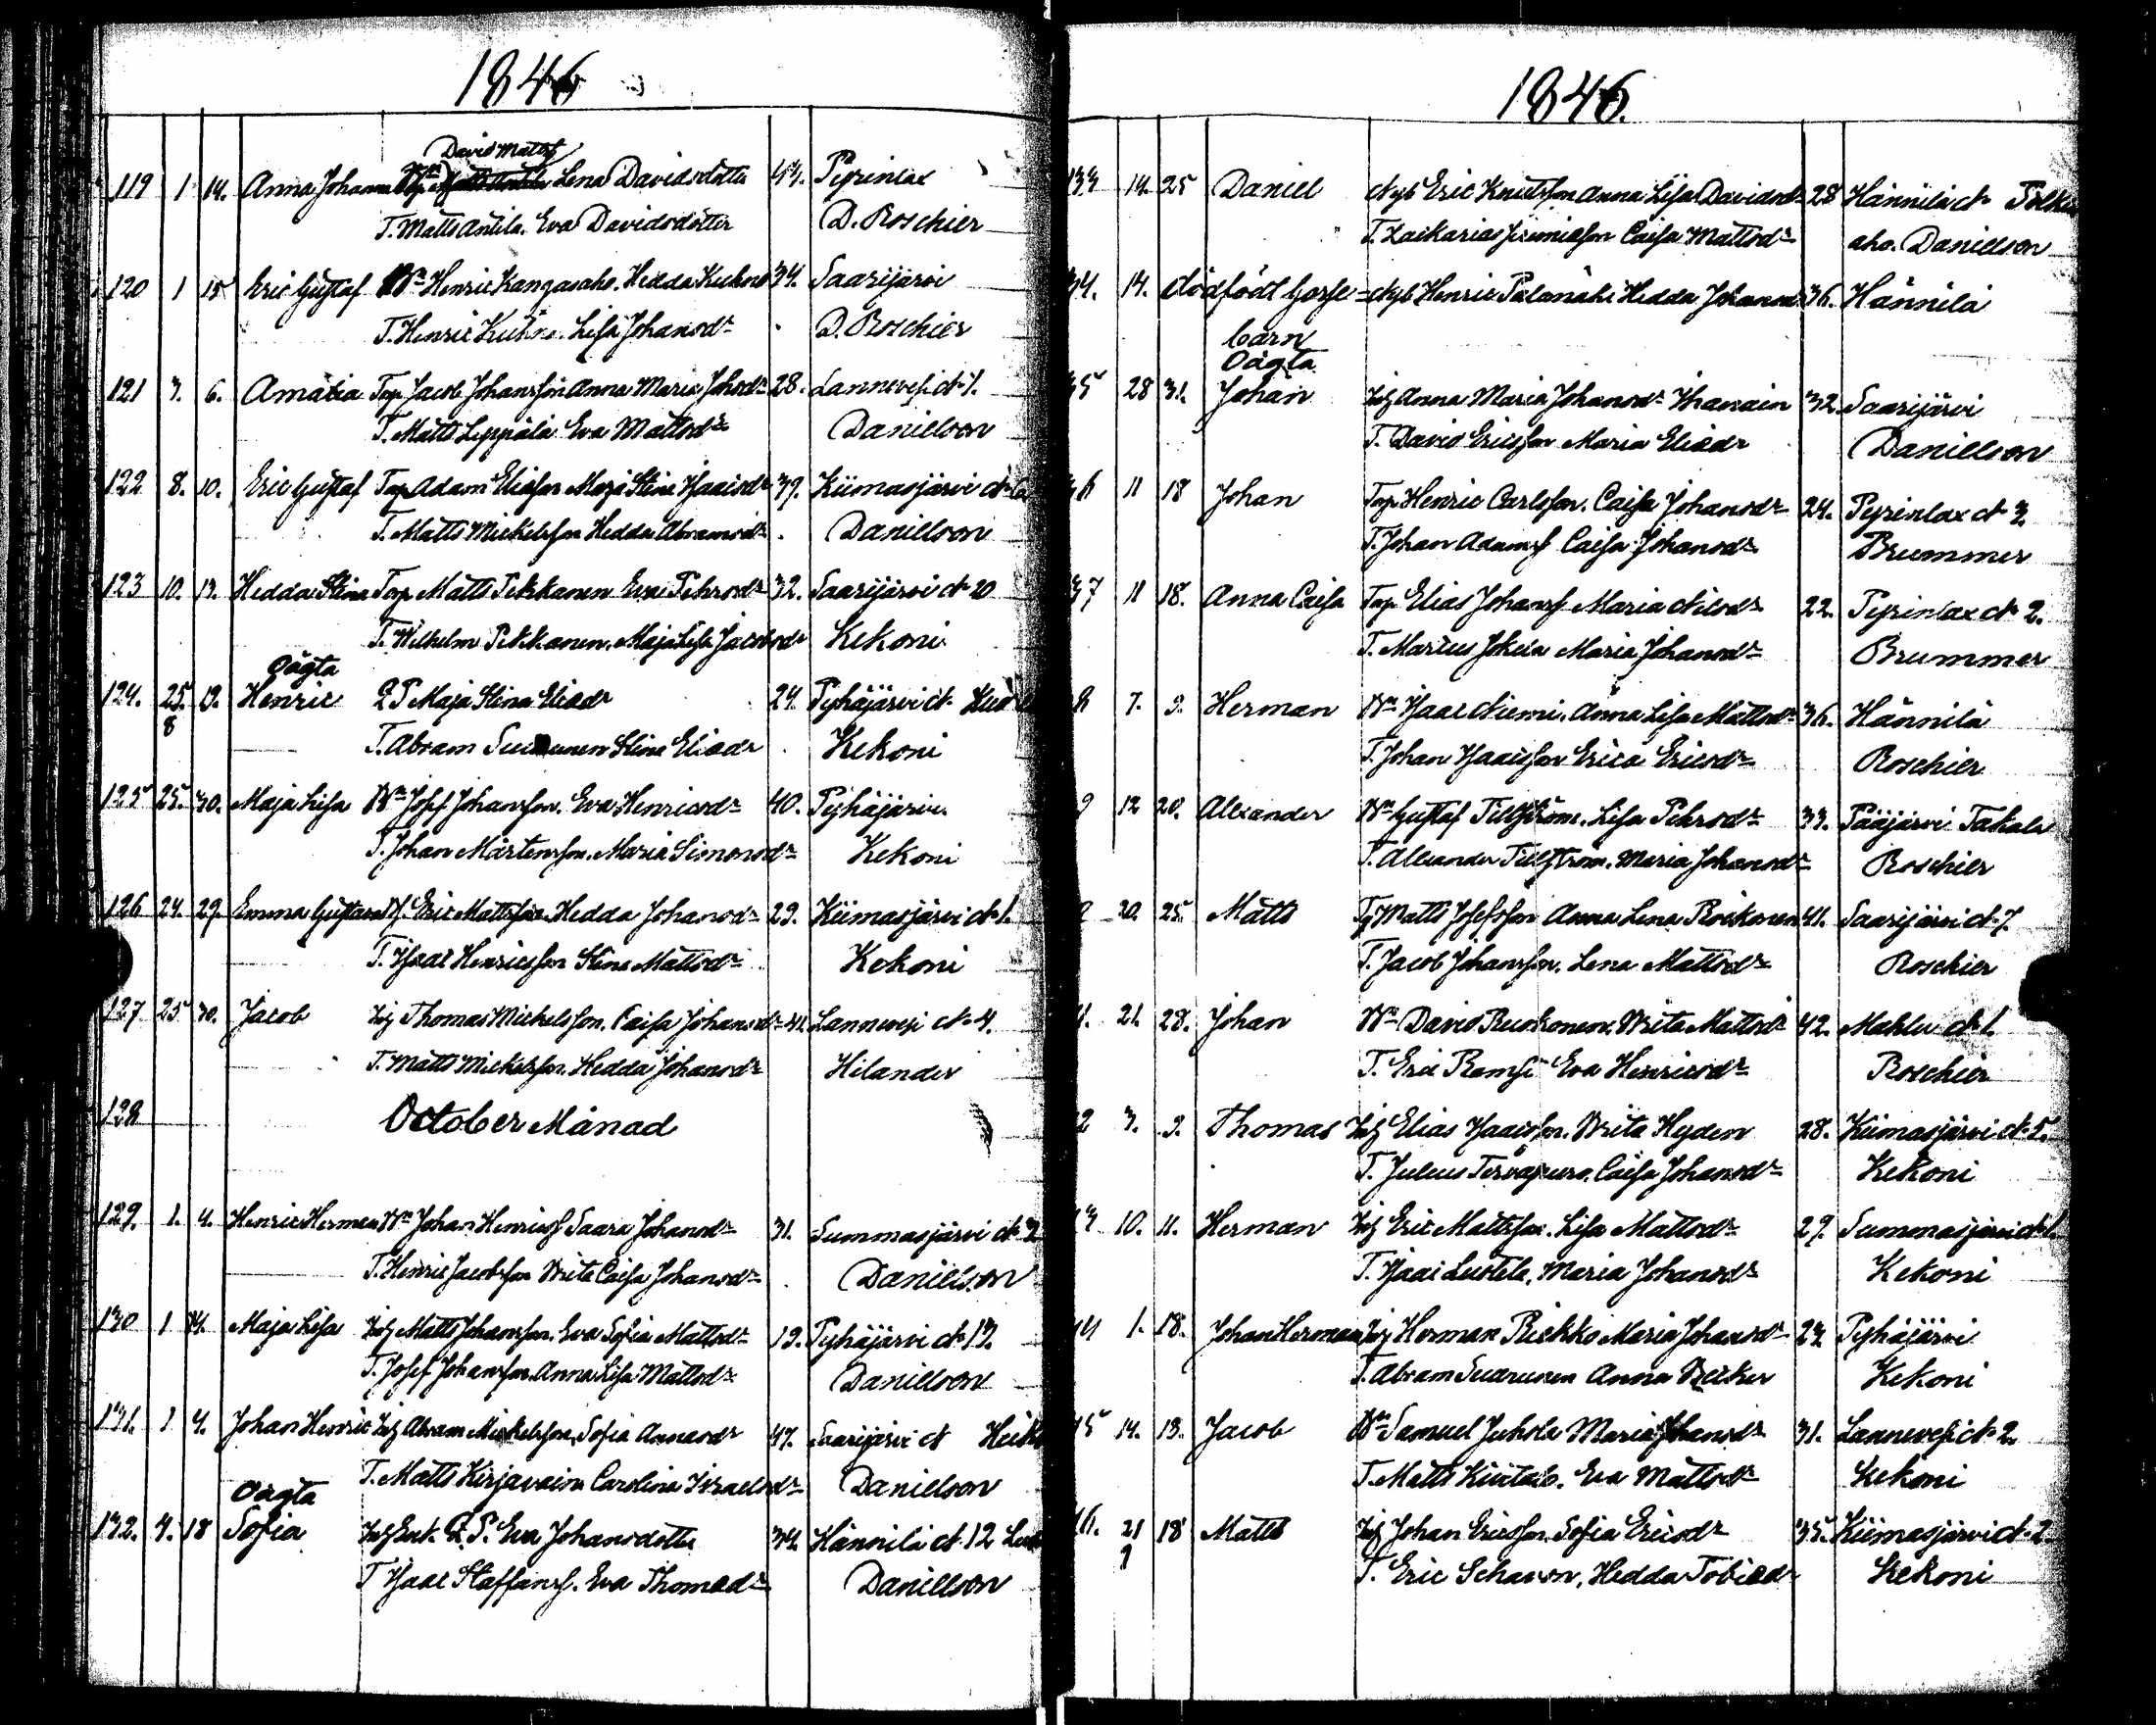 1846
David Matts
119 1 14. Anna Johanna Lena Davidsdotter 43. Pyrinlax
T. Matts Antila. Eva Davidsdotter D. Roschier
120 1 15 Eric Gustaf Bn Henric Kangasaho. Hedda 34. Saarijärvi
T. Henric Lisa Johansdr D. Roschier
121 3. 6. Amalia Torp Jacob Johansson Anna Maria Johsdr 28. Lannevesi № 7.
T. Matts Leppälä Eva Mattsdr Danielson
122 8. 10. Eric Gustaf Torp Adam Eliasson Maja Stina Isaacsdr 39. Kiimasjärvi №
T. Matts Mickelsson Hedda Abramsdr Danielson
123 10. 13. Hedda Stina Torp Matts Pekkanen Eva Pehrsdr 32. Saarijärvi № 20
T. Wilhelm Pekkanen. Maja Lisa Jacobsdr Kekoni
Oägta
124. 25. 19. Henric Q P Maja Stina Eliadr 24. Pyhäjärvi №
8
T. Abram Stina Eliadr Kekoni
125 25. 30. Maja Lisa Bn Josef Johansson. Eva Henricsdr 40. Pyhäjärvi.
T. Johan Mårtensson. Maria Simonsdr Kekoni
126 24. 29. Emma Gustava Eric Mattsson. Hedda Johansdr 29. Kiimasjärvi № 1.
T. Isaac Henricsson Stina Mattsdr Kekoni
127 25 30. Jacob Inh Thomas Mickelsson. Caisa Johansdr 41. Lannevesi № 4.
T. Matts Mickelsson. Hedda Johansdr Hilander
128 October Månad
129. 1. 4. Henric Herman Bn Johan Henricss Saara Johansdr 31. Summasjärvi № 2
T. Henric Jacobsson Brita Caisa Johansdr Danielson
130 1 14. Maja Lisa Inh Matts Johansson. Eva Sofia Mattsdr 19. Pyhäjärvi № 13.
T. Josef Johansson. Anna Lisa Mattsdr Danielson
131. 1 4. Johan Henric Inh Abram Mickelsson, Sofia Annasdr 47. Saarijärvi №
T. Matts Kirjavain Carolina Israelsdr Danielson
Oägta
132. 4. 18 Sofia Inh Q. P. Eva Johansdotter 34. Hännilä № 12
T Isaac Staffanss. Eva Thomadr Danielson
1846.
133 14. 25 Daniel Nyb Eric Knutsson Anna Lisa Davidsdr 28 Hännilä №
T. Zackarias Caisa Mattsdr aho. Danielson
34. 14. dödfödt gosse- Nyb Henric Palanähi Hedda Johansdr 36. Hännilä
barn
Oägta
35 28 31. Johan Inh Anna Maria Johansdr 32 Saarijärvi
T. David Ericsson Maria Eliadr Danielson
36 11 18 Johan Torp Henric Carlsson. Caisa Johansdr 24. Pyrinlax № 3.
T. Johan Adamss Caisa Johansdr Brummer
37 11 18. Anna Caisa Torp Elias Johanss Maria Nilsdr 22. Pyrinlax № 2.
T. Marcus Jokela Maria Johansdr Brummer
8 7. 9. Herman Bn Isaac Niemi. Anna Lisa Mattsdr 36. Hännilä
T. Johan Isaacsson Erica Ericsdr Roschier
9 12 20. Alexander Bn Gustaf Tillström. Lisa Pehrsdr 33. Pääjärvi Takala
T. Alexander Tillström. Maria Johansdr Roschier
20. 25. Matts Matts Josefsson Anna Lena 41. Saarijärvi № 7.
T. Jacob Johansson. Lena Mattsdr Roschier
1. 21. 28. Johan Bn David Ruokonen. Brita Mattsdr 42. Mahlu № 1.
T. Eric Ramsi Eva Henricsdr Roschier
2 3. 9. Thomas Inh Elias Isaacsson. Brita Hyden 28. Kiimasjärvi № 5.
T. Julius Tervapuro. Caisa Johansdr Kekoni
43 10. 11. Herman Inh Eric Mattsson. Lisa Mattsdr 29. Summasjärvi № 1.
T. Isaac Maria Johansdr Kekoni
44 1. 18. Johan Herman Inh Herman Riekko Maria Johansdr 23. Pyhäjärvi
T. Abram Anna Kekoni
45 14. 19. Jacob Bn Samuel Juhola Maria Johansdr 31. Lannevesi № 2.
T. Matts Eva Mattsdr Kekoni
46. 21 18 Matts Inh Johan Ericsson. Sofia Ericsdr 35. Kiimasjärvi № 2
9
T. Eric Schavon, Hedda Tobiadr Kekoni